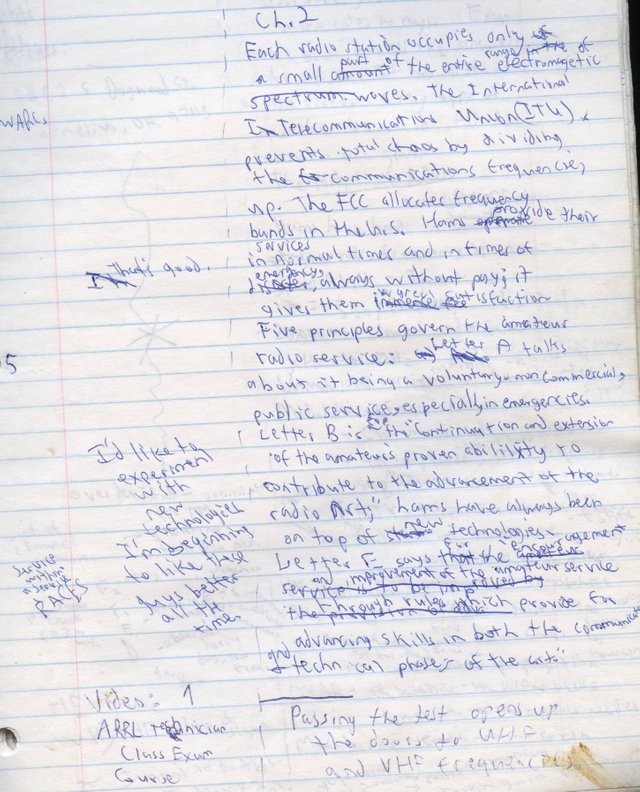 Ch. 2
Each radio station occupies only
a small part of the entire range of electromagetic
spectrum waves. The International
Telecommunications Union (ITU)
prevents total chaos by dividing
the communications frequencies
up. The FCC allocates frequency
bands in the U.S. Hams provide their
services
in normal times and in times of
emergency,
always without pay; it
gives them great satisfaction
Five principles govern the amateur
radio service: Letter A talks
about it being a voluntary noncommercial,
public service, especially in emergencies.
Letter B is the "Continuation and extension
of the amateur's proven abilility to
contribute to the advancement of the
radio Art;" hams have always been
on top of new technologies.
Letter E says the encouragement
and improvement of the amateur service
through rules which provide for
advancing skills in both the communication
and technical phases of the arts"
WARCs
That's good.
5
I'd like to
experiment
with
new
technologies
I'm beginning
to like these
guys better
all the
time
Service
within
a service
RACES
Video: 1
ARRL Technician
Class Exam
Course
Passing the test opens up
the doors to UHF
and VHF frequencies